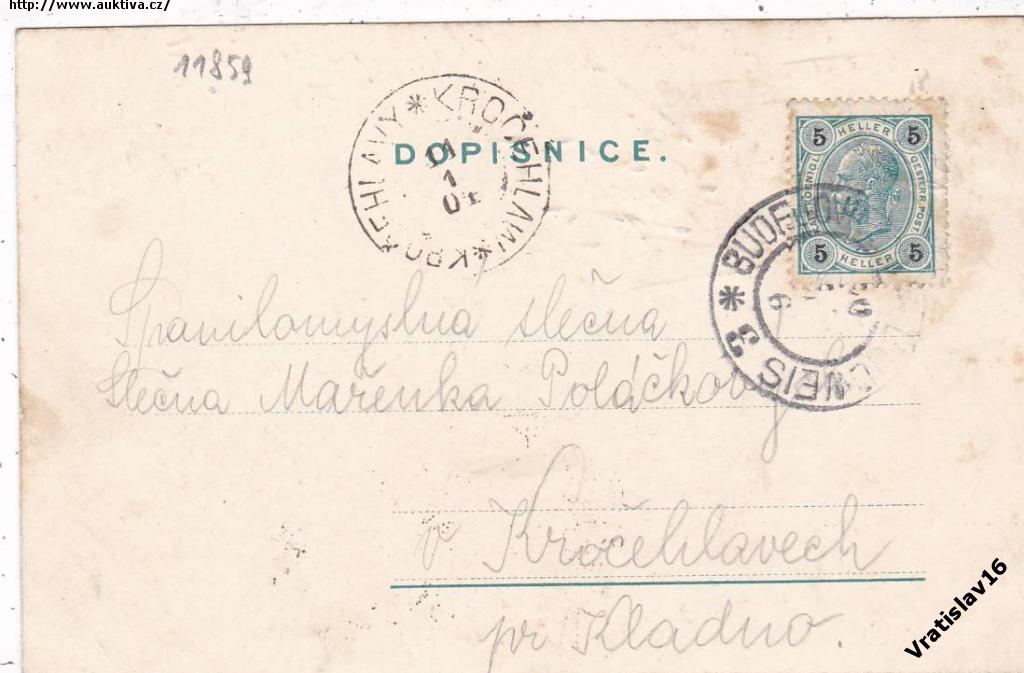 http://www.auktiva.cz/
11859
KROČEHLAW * KROČEHLAVY *
DOPISNICE.
5 HELLER 5
5 HELLER 5
OESTERR. POST
* BUDE
NEIS 3
Spanilomyslna slečna
Slečna Mařenka Poláčkov
v Kročehlavech
pr Kladno.
Vratislav16